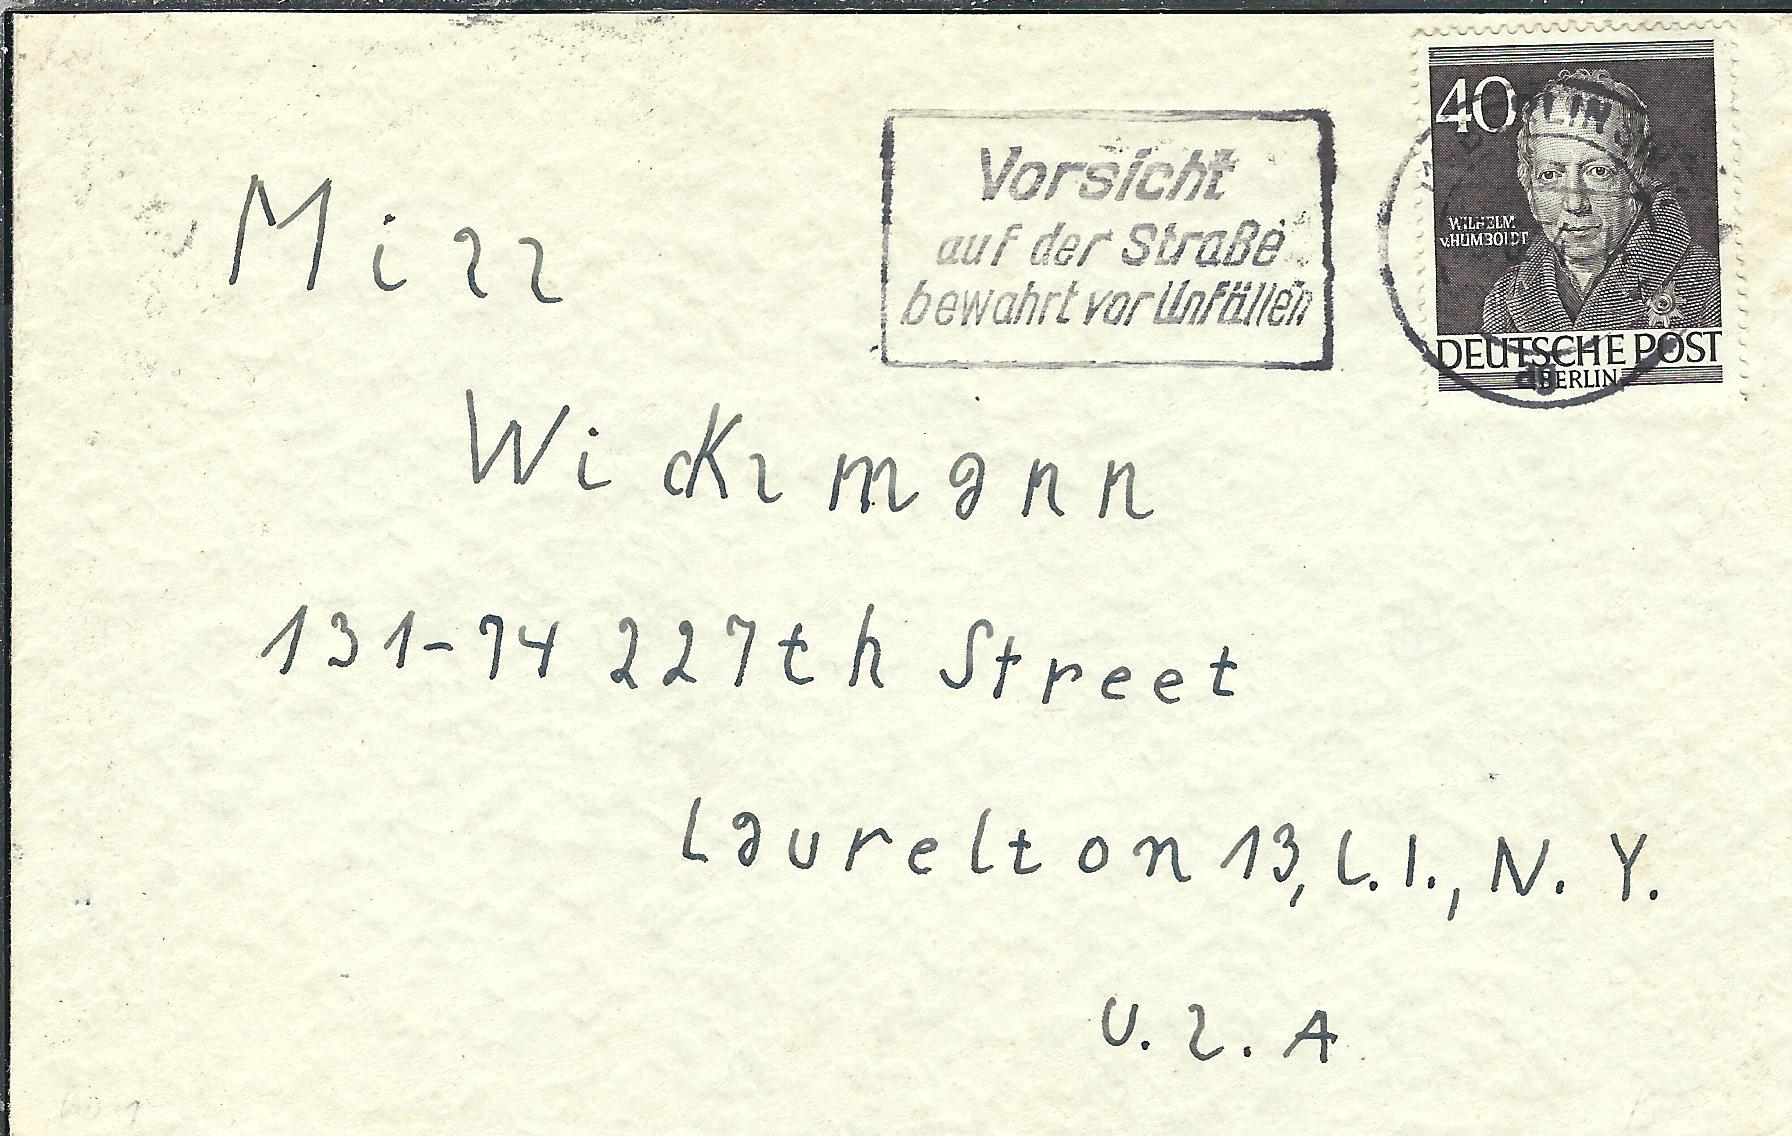 40
WILHELM
v. HUMBOLDT
DEUTSCHE POST
BERLIN
BERLIN
Vorsicht
auf der Straße
bewahrt vor Unfällen
Miss
Wicksmann
131-74 227th Street
Laurelton 13, L.I., N.Y.
U.S.A